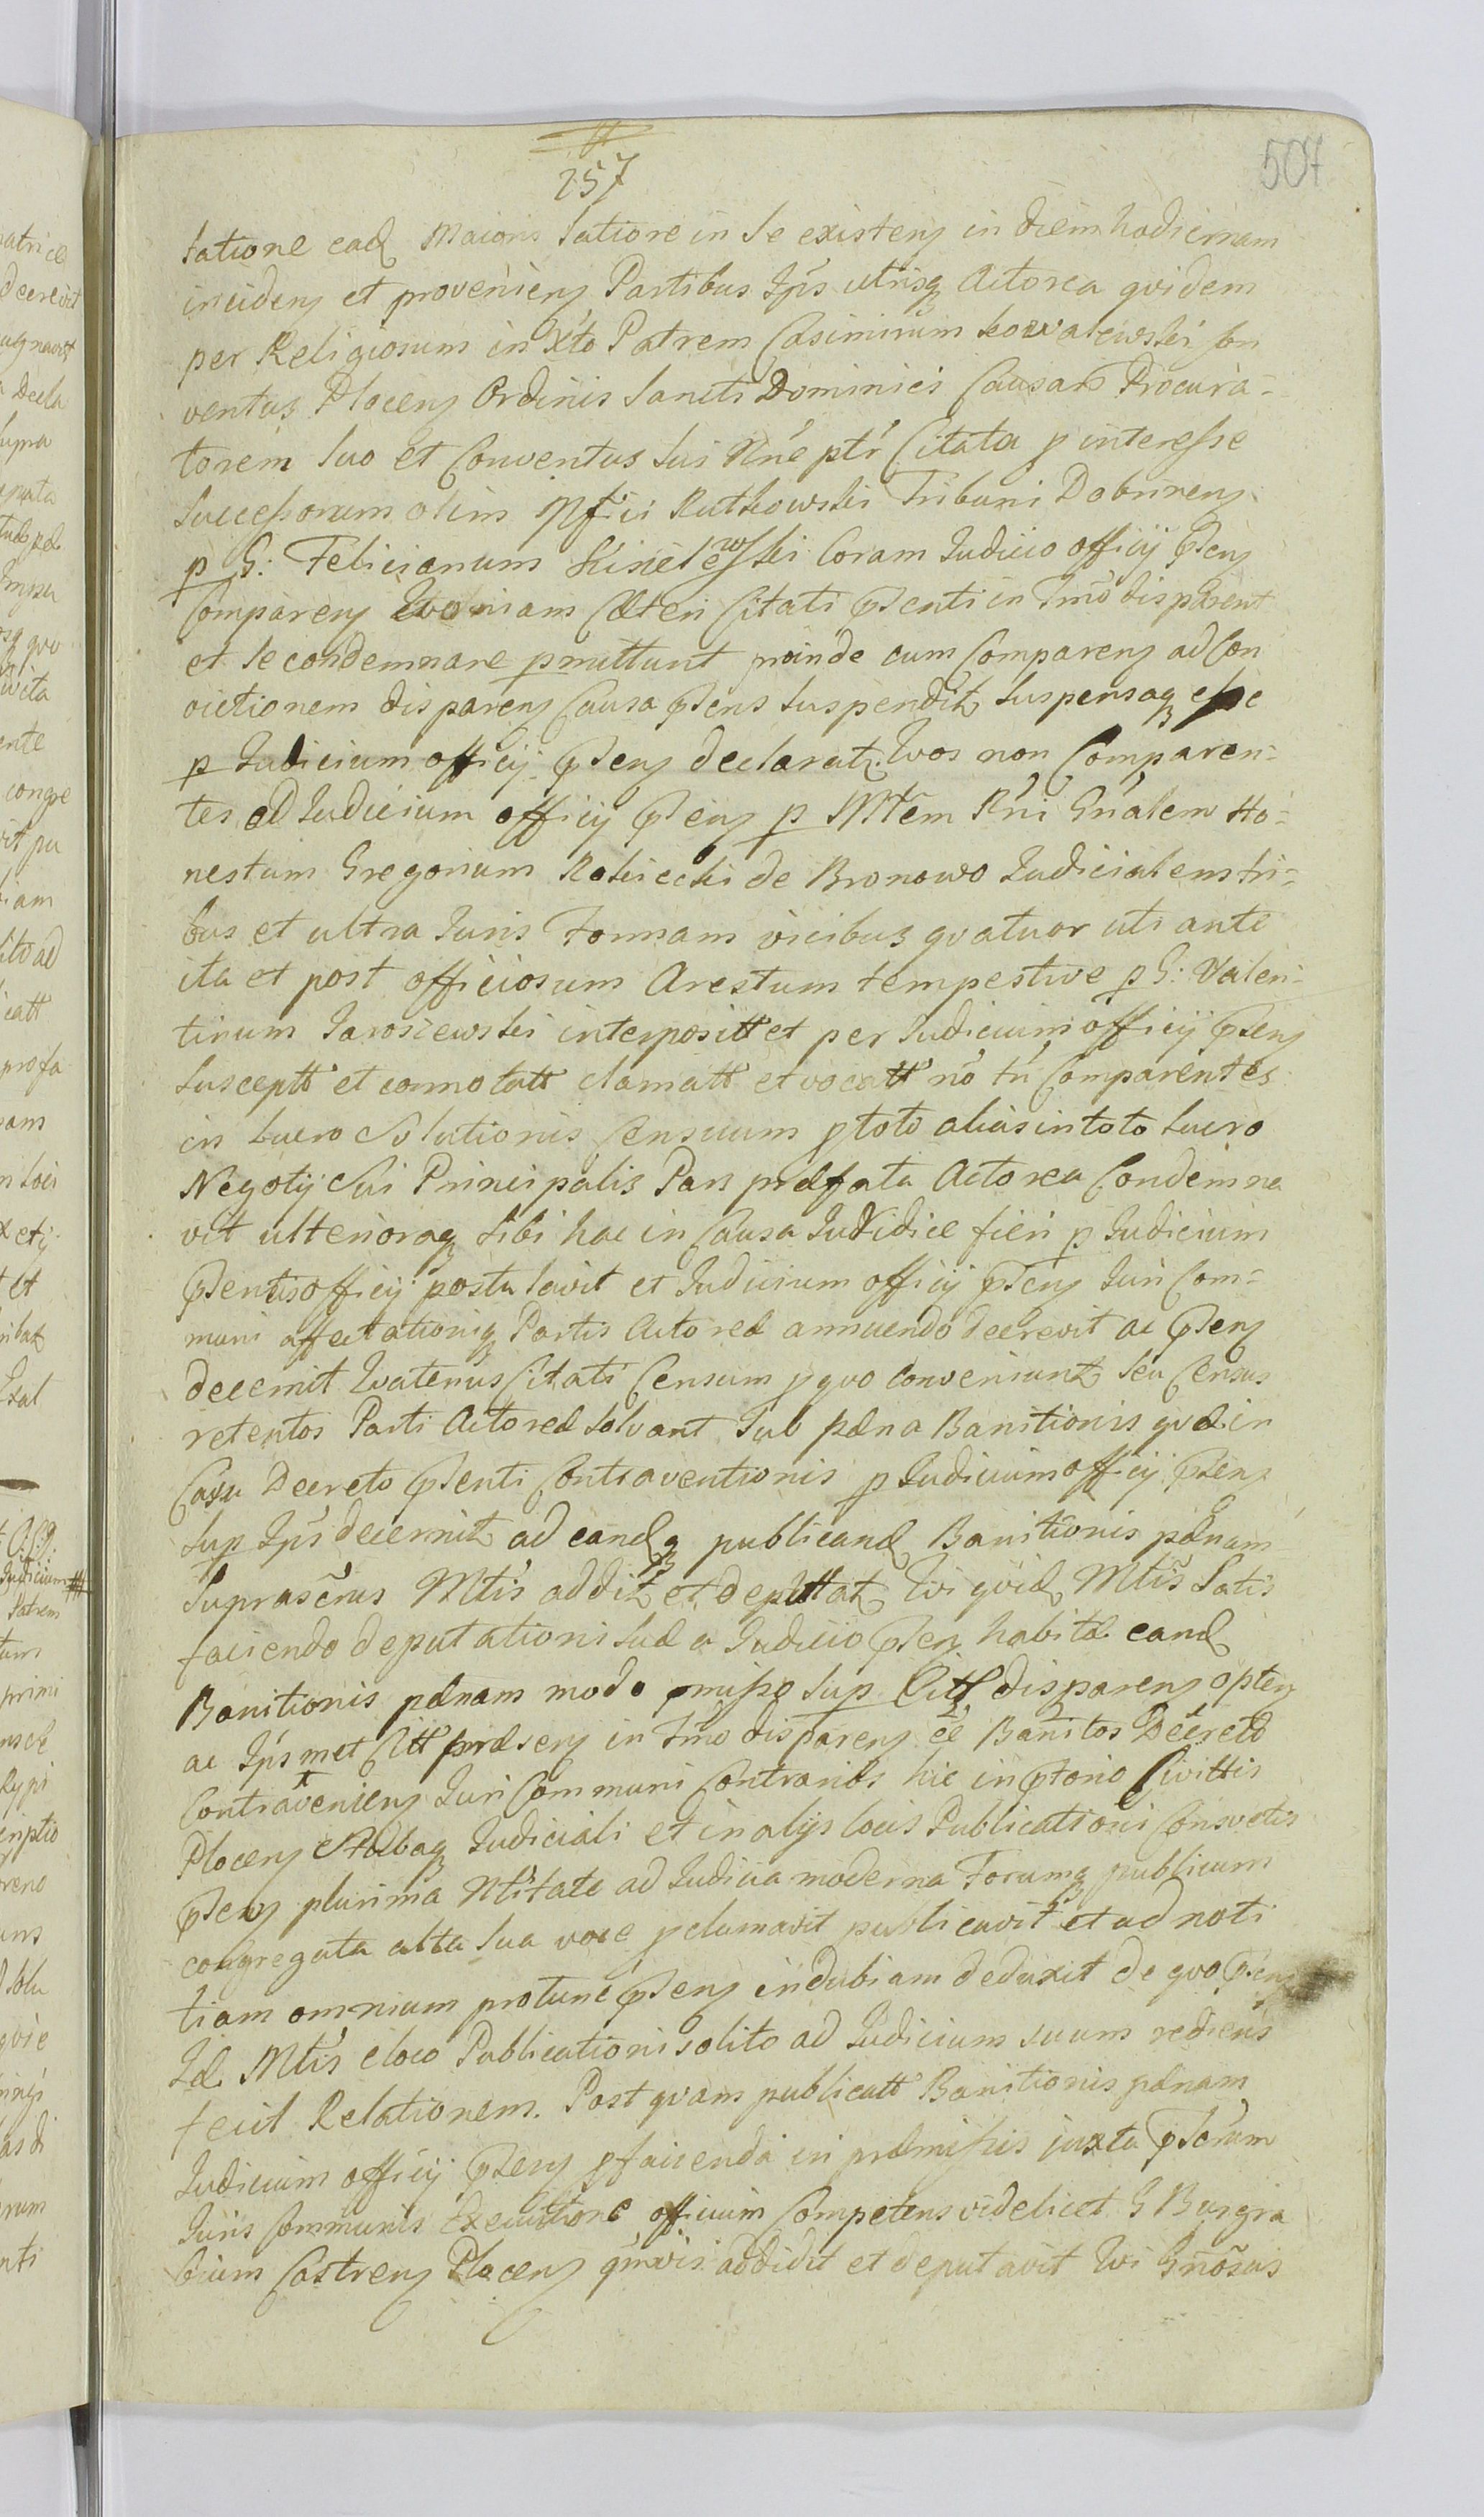 257
507
tatione ead Maioris Satiore in Se existens in diem hodiernam
incidens et proveniens Partibus Ips utrisq Actorea qvidem
per Religiosum in Xto Patrem Casimirum Kowalewski Con
ventus Plocens Ordinis Sancti Dominici Causar Procura-
torem Suo et Conventus Sui Nne ptr Citata p interesse
Successorum olim Mfici Rutkowski Tribuni Dobrinens
p G: Felicianum Kisielewski Coram Judicio officij Ptens
Comparens Qvoniam Cæteri Citati Ptenti in Tmo disparent
et Se condemnare pmittunt proinde cum Comparens ad Con
victionem disparens Causa Ptens Suspendit Suspensaq esse
p Judicium officij Ptens declarat. Qvos non Comparen-
tes ad Judicium officij Ptens p Mtem Rni Gnalem Ho-
nestum Gregorium Rokiecki de Bronowo Judicialem tri-
bus et ultra Juris Formam vicibus qvatuor uti ante
ita et post officiosum Arestum tempestive p G: Valen-
tinum Jarosiewski interpositt et per Judicium officij Ptens
Susceptt et connotatt clamatt et vocatt no tn Comparentes
in Lucro Solutionis Censuum p toto alias in toto Lucro
Negotij Sui Principalis Pars præfata Actorea Condemna
vit ulterioraq Sibi hac in Causa Juridice fieri p Judicium
Ptentis officij postulavit et Judicium officij Ptens Juri Com-
muni affectationiq Partis Actoreæ annuendo decrevit ac Ptens
decernit Qvatenus Citati Censum p qvo Conveniunt Seu Census
retentos Parti Actoreæ Solvant Sub pæna Banitionis qvæ in
Casu Decreto Ptenti Contraventionis p Judicium officij Ptens
Sup Ips decernit ad eandq publicand Banitionis pænam
Suprascrus Mtis addit et deputtat Qvi qvid Mtis Satis
faciendo deputationi Suæ a Judicio Ptens habitæ eand
Banitionis pænam modo pmisso Sup Citt disparens Ptens
ac Ips met Citt præsens in Tmo disparens ee Banitos Decreto
Contraveniens Juri Communi Contrarios hic in Ptorio Civittis
Plocens Stubaq Judiciali et in alijs locis Publicationi Consvetis
Ptens plurima Ntitate ad Judicia moderna Forumq publicum
congregata alta Sua voce pclamavit publicavit et ad noti
tiam omnium protunc Ptens indubiam deduxit de qvo Ptens
Id Mtis e loco Publicationi solito ad Judicium suum rediens
fecit Relationem. Post qvam publicatt Banitionis pænam
Judicium officij Ptens p facienda in præmissis juxta Ptorum
Juris Communis Executione officium Competens videlicet G Burgra
bium Castrens Plocens qmvis addidit et deputavit Qvi Gnosus